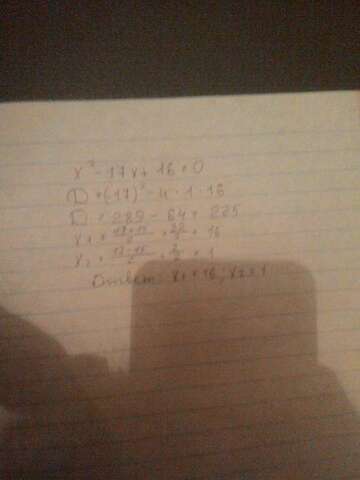 x² - 17x + 16 = 0
D = (17)² - 4 · 1 · 16
D = 289 - 64 = 225
x₁ = (17+15)/2 = 32/2 = 16
x₂ = (17-15)/2 = 2/2 = 1
Ответ: x₁ = 16, x₂ = 1